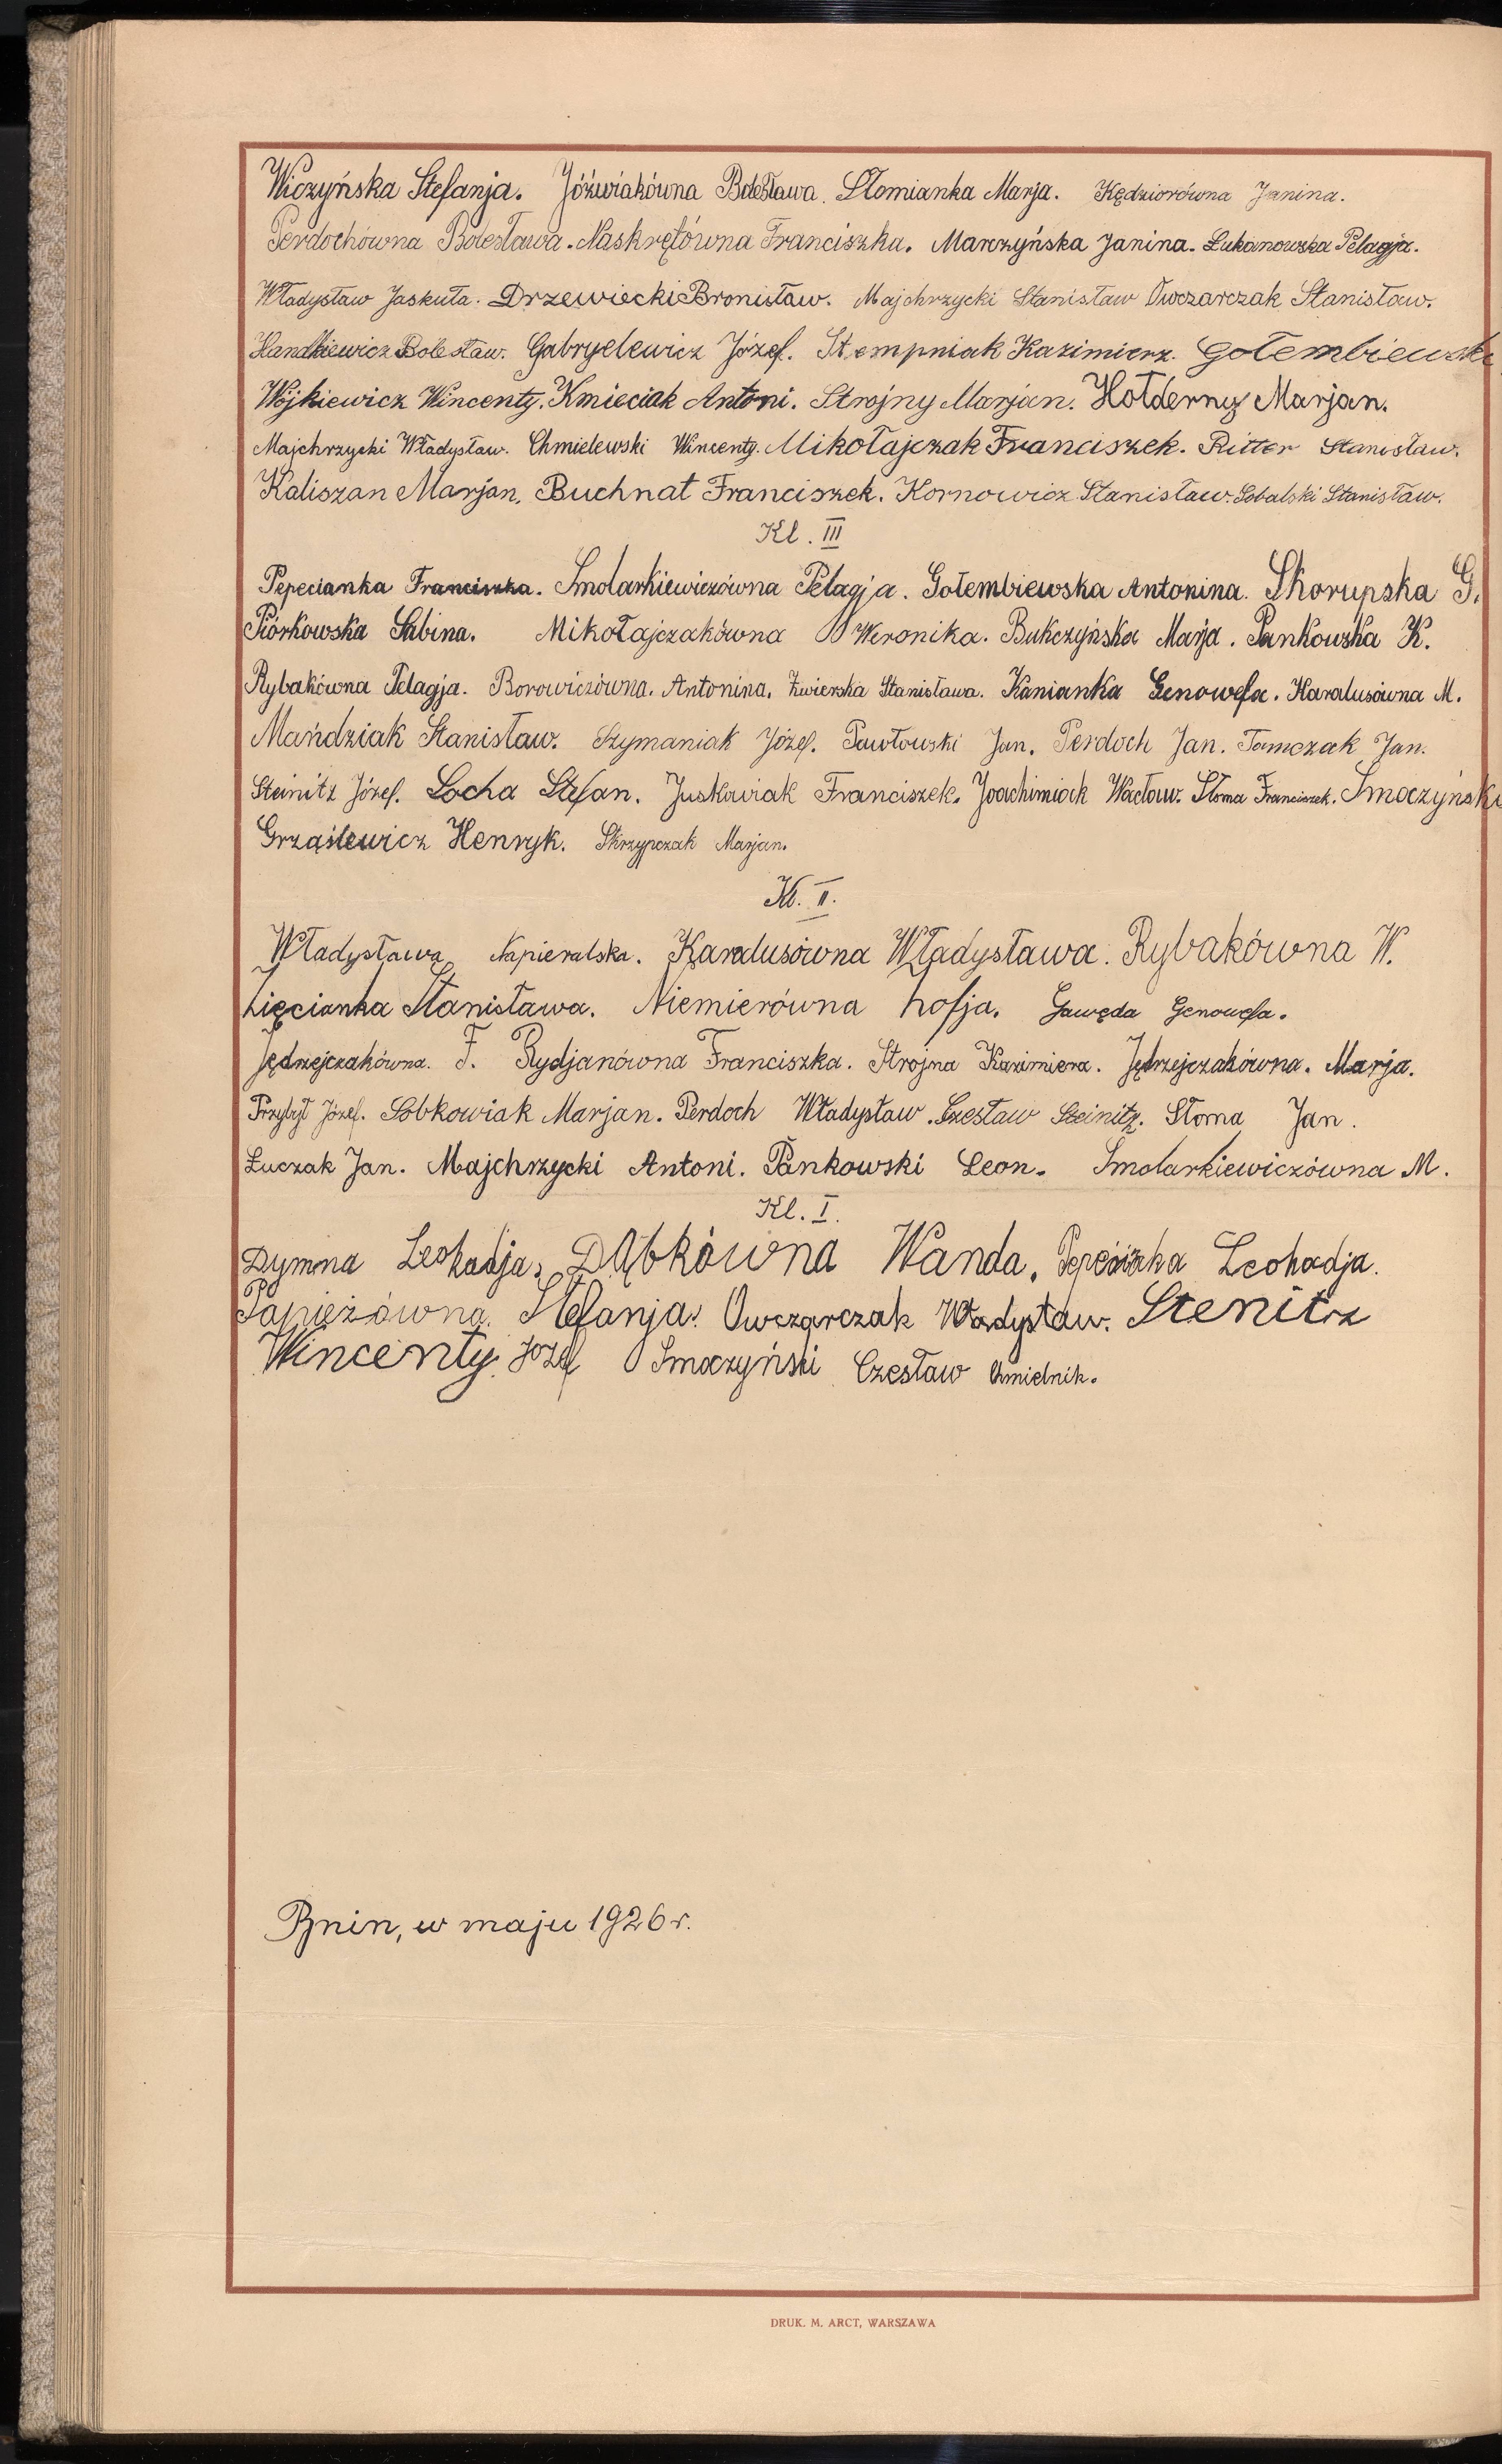 Wiczyńska Stefanja. Jóźwiakówna Bolesława. Słomianka Marja. Kędziorówna Janina.
Perdochówna Bolesława. Naskrętówna Franciszka. Marczyńska Janina. Łukanowska Pelagja.
Władysław Jaskuła. Drzewiecki Bronisław. Majchrzycki Stanisław Owczarczak Stanisław.
Handkiewicz Bolesław. Gabryelewicz Józef. Stempniak Kazimierz. Gołembiewski
Wójkiewicz Wincenty. Kmieciak Antoni. Strojny Marjan. Hołderny Marjan.
Majchrzycki Władysław. Chmielewski Wincenty. Mikołajczak Franciszek. Ritter Stanisław.
Kaliszan Marjan. Buchnat Franciszek. Kornowicz Stanisław. Sobalski Stanisław.
Kl. III
Pepecianka Franciszka. Smolarkiewiczówna Pelagja. Gołembiewska Antonina. Skorupska G.
Piórkowska Sabina. Mikołajczakówna Weronika. Bukczyńska Marja. Pankowska K.
Rybakówna Pelagja. Borowiczówna. Antonina. Żwierska Stanisława. Kanianka Genowefa. Haralusówna M.
Mańdziak Stanisław. Szymaniak Józef. Pawłowski Jan. Perdoch Jan. Tomczak Jan.
Steinitz Józef. Socha Stefan. Juskowiak Franciszek. Joachimiak Wacław. Słoma Franciszek. Smoczyński
Grząślewicz Henryk. Skrzypczak Marjan.
Kl. II.
Władysława Napieralska. Karalusówna Władysława. Rybakówna W.
Zięcianka Stanisława. Niemierówna Zofja. Gawęda Genowefa.
Jędrzejczakówna. F. Rydjanówna Franciszka. Strojna Kazimiera. Jędrzejczakówna. Marja.
Przybył Józef. Sobkowiak Marjan. Perdoch Władysław. Czesław Steinitz. Słoma Jan.
Łuczak Jan. Majchrzycki Antoni. Pankowski Leon. Smolarkiewiczówna M.
Kl. I.
Dymna Leokadja. Dąbkówna Wanda. Leokadja.
Papieżówna. Stefanja. Owczarczak Władysław. Stenitz
Wincenty. Józef Smoczyński Czesław Chmielnik.
Bnin, w maju 1926 r.
DRUK. M. ARCT, WARSZAWA